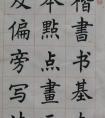 楷書书基
本點点畫
及偏旁写法